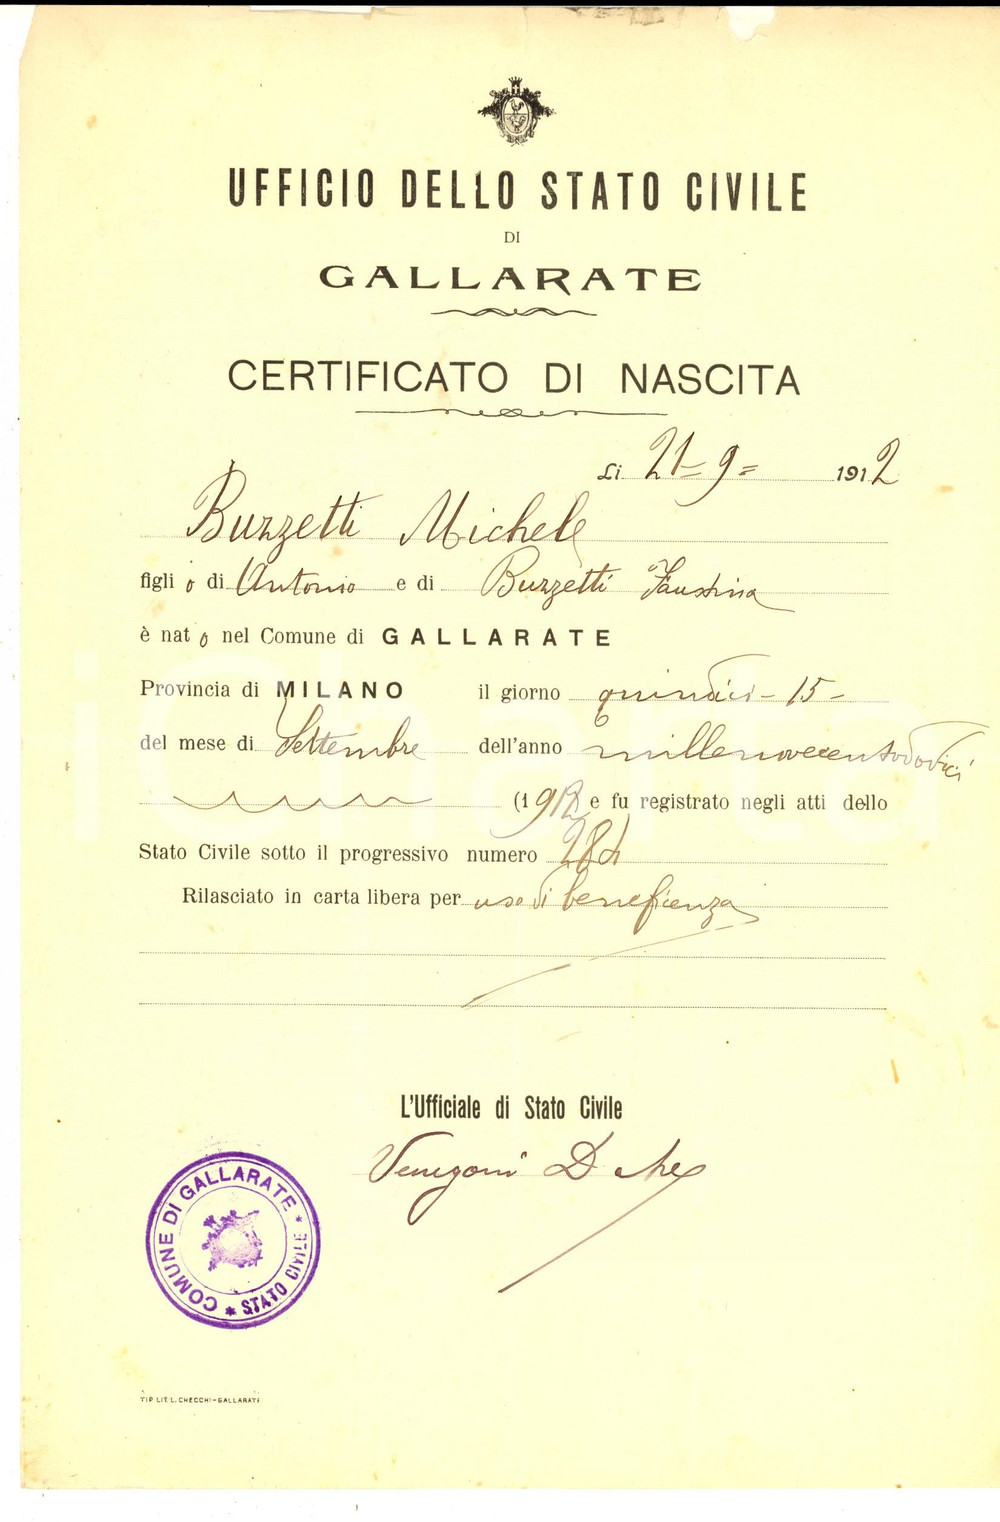 UFFICIO DELLO STATO CIVILE
DI
GALLARATE
CERTIFICATO DI NASCITA
Li 21=9= 1912
Buzzetti Michele
figlio di Antonio e di Buzzetti Faustina
è nato nel Comune di GALLARATE
Provincia di MILANO il giorno quindici - 15 -
del mese di Settembre dell'anno millenovecentododici
(1912) e fu registrato negli atti dello
Stato Civile sotto il progressivo numero 284
Rilasciato in carta libera per uso di beneficenza
L'Ufficiale di Stato Civile
Venegoni
COMUNE DI GALLARATE * STATO CIVILE *
TIP. LIT. L. CHECCHI-GALLARATE
iCharta